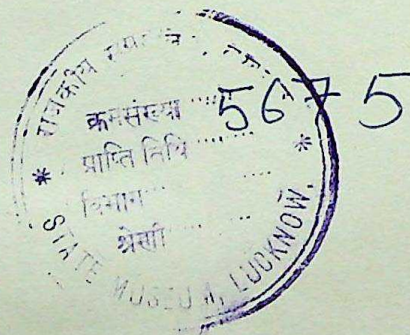 राजकीय
क्रमसंख्या ..... 5675
प्राप्ति तिथि .....
विभाग .....
श्रेणी .....
* STATE MUSEUM, LUCKNOW. *